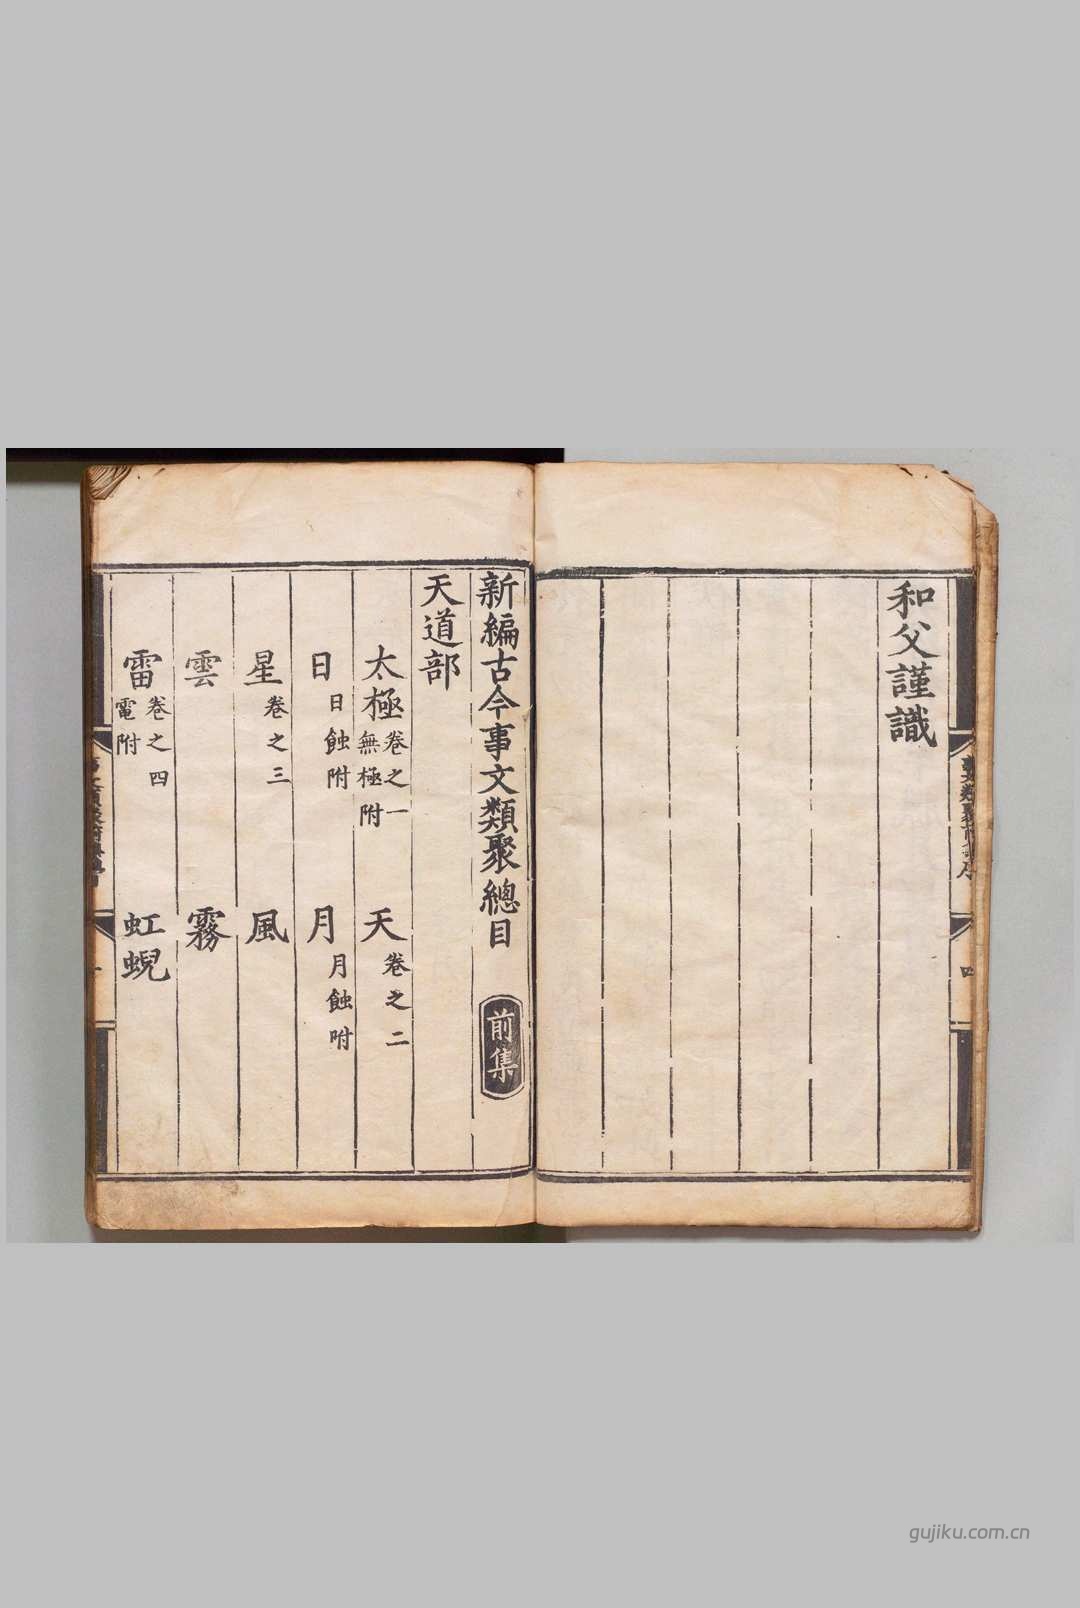 和父謹識
新編古今事文類聚總目 前集
天道部
太極 卷之一 無極附 天 卷之二
日 日蝕附 月 月蝕附
星 卷之三 風
雲 霧
雷 卷之四 電附 虹蜺
gujiku.com.cn